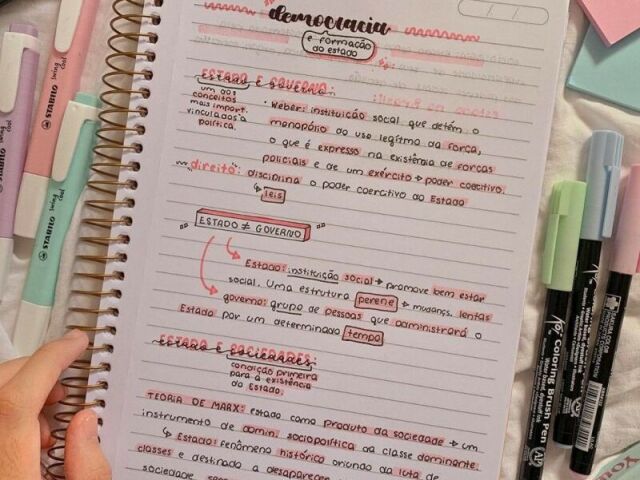 democracia
e formação
do estado
ESTADO E GOVERNO:
um dos
conceitos
mais import.
vinculados à
política.
• Weber: instituição social que detém o
monopólio do uso legítmo da força,
o que é expresso na existência de forças
policiais e de um exército → poder coercitivo.
direito: disciplina o poder coercitivo do Estado
↳ leis
ESTADO ≠ GOVERNO
Estado: instituição social → promove bem estar
social. Uma estrutura perene → mudanç. lentas
governo: grupo de pessoas que administrará o
Estado por um determinado tempo
ESTADO E SOCIEDADES:
condição primeira
para a existência
do Estado.
TEORIA DE MARX: estado como produto da sociedade → um
instrumento de domin. sociopolítica da classe dominante.
↳ Estado: fenômeno histórico oriundo da luta de
classes e destinado a desaparecer
sociedade
STABILO swing cool
STABILO swing cool
STABILO swing cool
Coloring Brush Pen